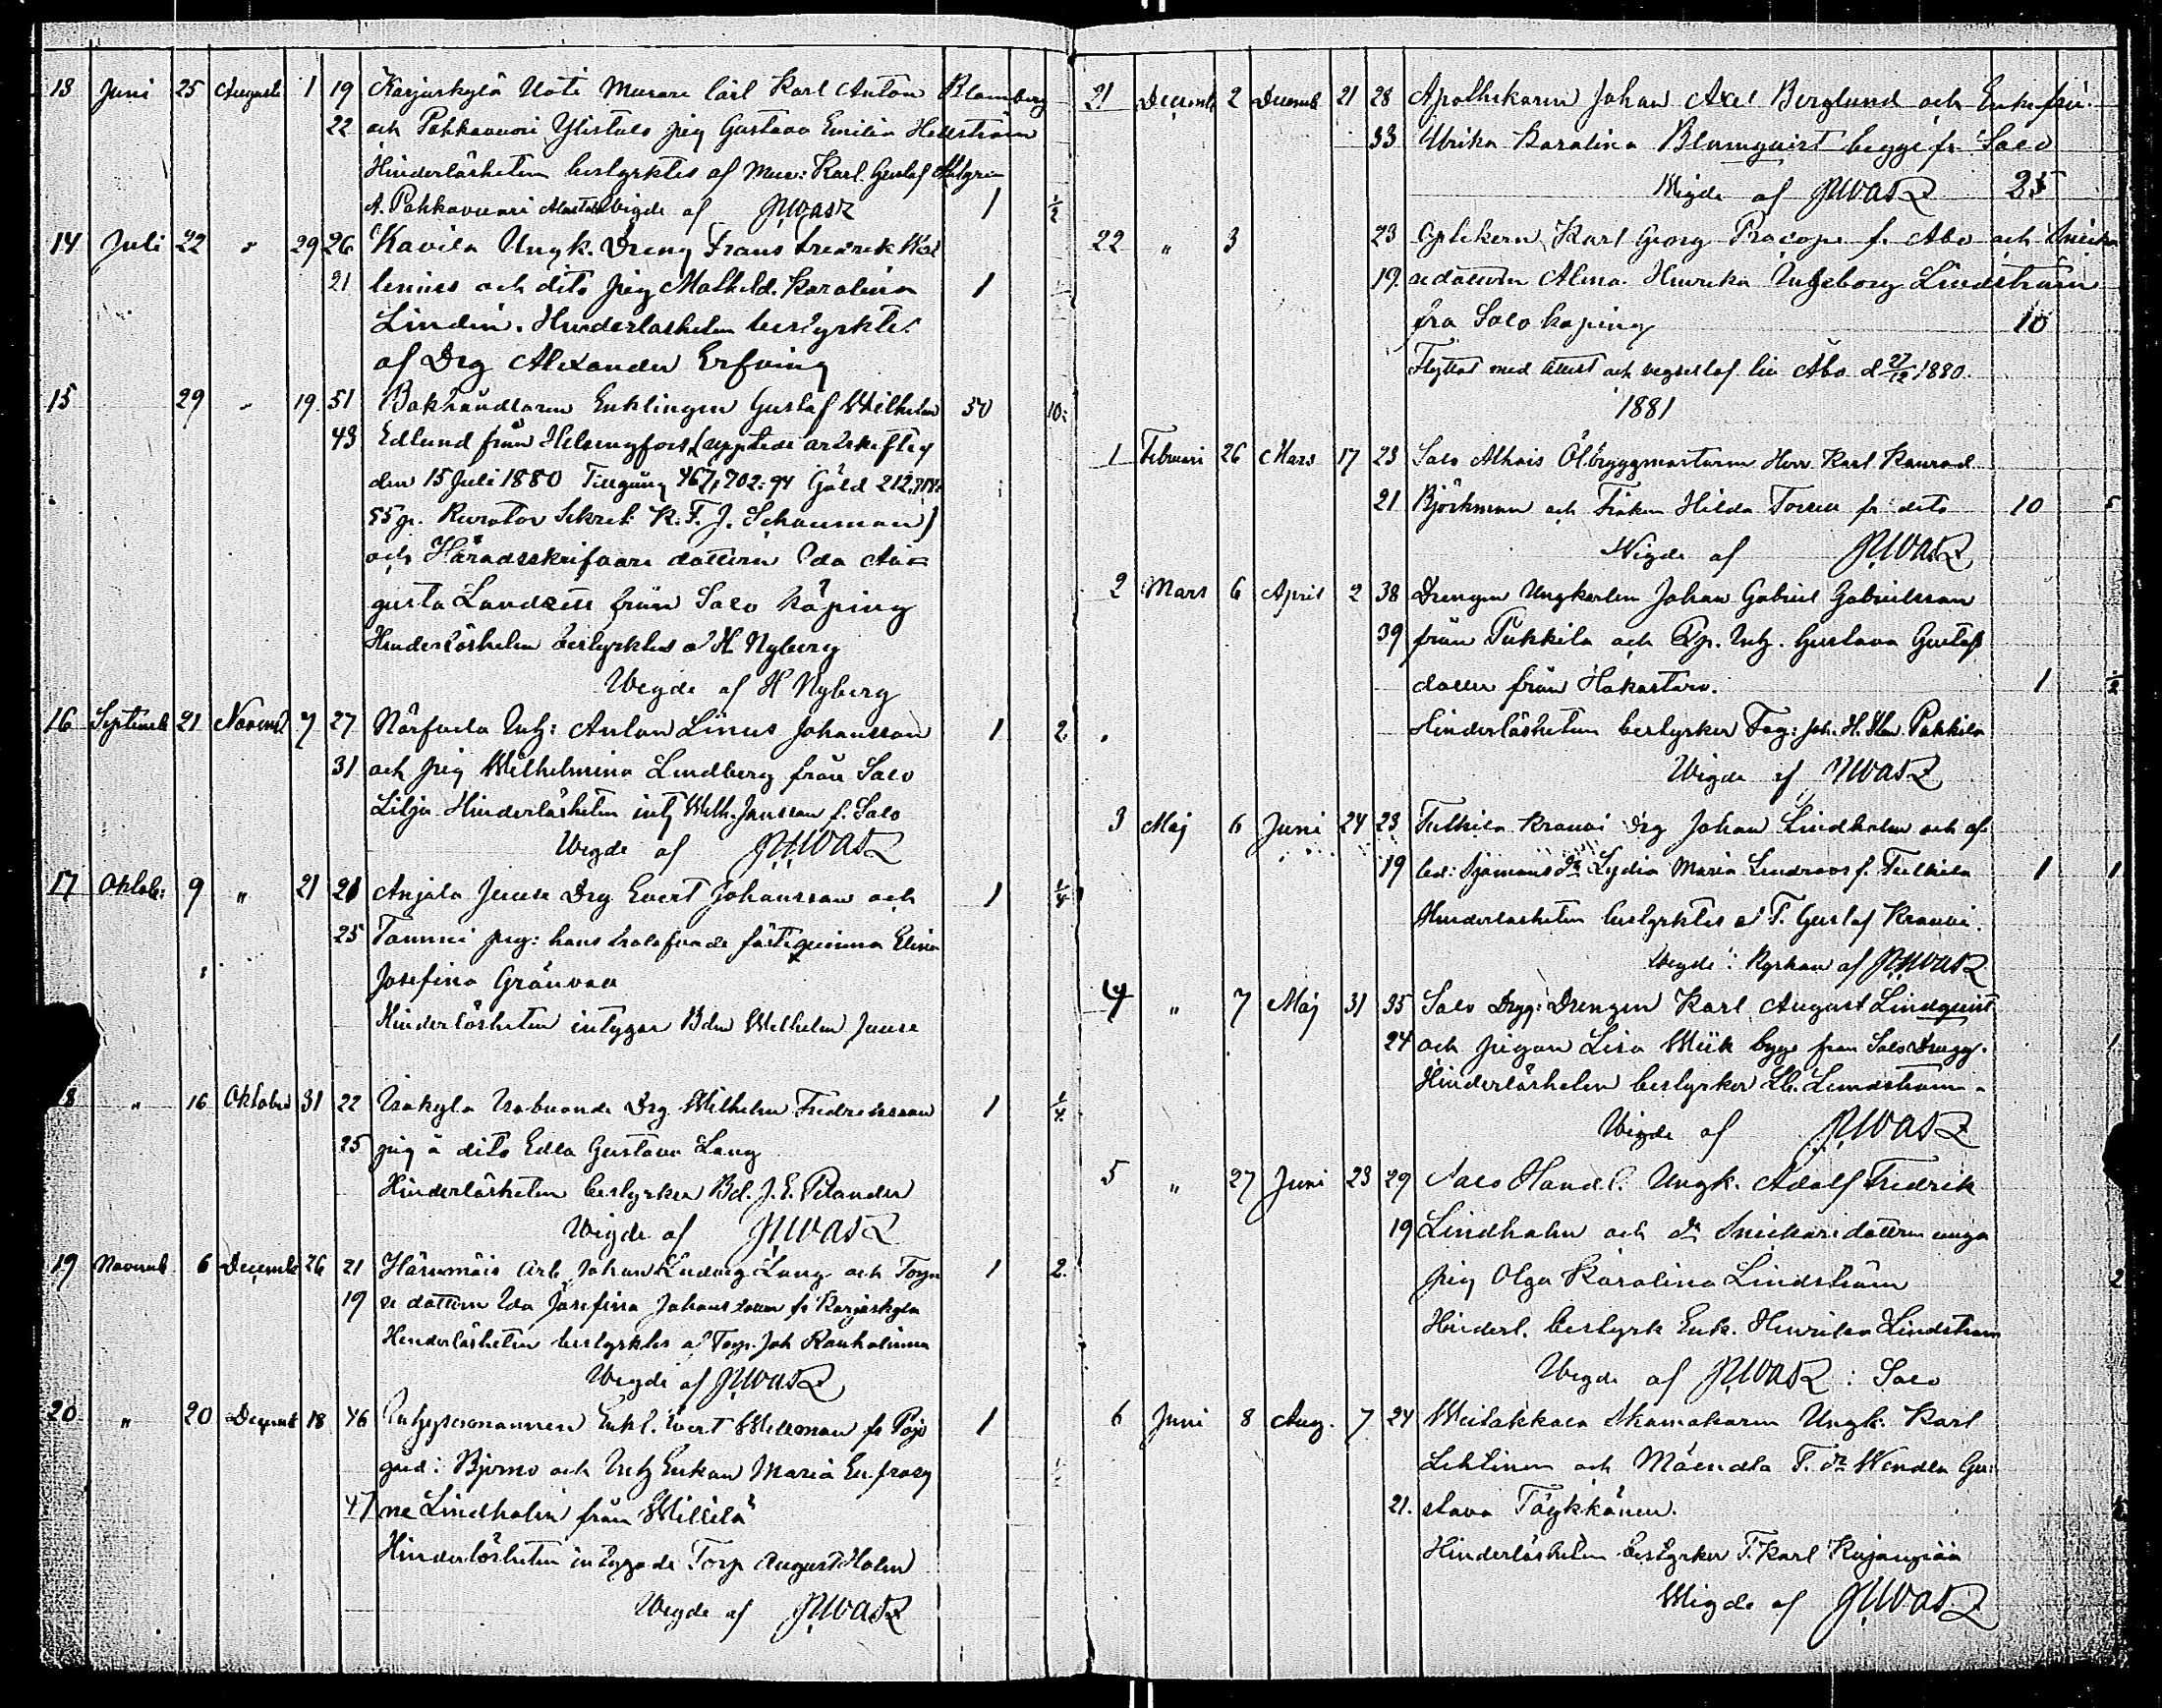 13 Juni 25 Augusti 1 19 Karjaskylä Uoti Murare lärl Karl Anton Blomberg
22 och Pahkavuori Ylistalo pig Gustava Emilia Hellström
Hinderlösheten bestyrktes af Mur: Karl Gustaf Ahlgren
A. Pahkavuori Vigde af 1 1/2
14 Juli 22 " 29 26 Kavila Ungk. Dreng Frans Fredrik Wal
21 lenius och dito pig Mathild. Karolina 1
Lindén. Hinderlösheten bestyrktes
af Drg Alexander Erfving
15 29 " 19 51 Bokhandlaren Enklingen Gustaf Wilhelm 50 10:
43 Edlund från Helsingfors, (upptedt arfskifte
den 15 Juli 1880 Tillgång 467,702:94 Gäld
55 p. Kurator Sekret: K. F. J. Schauman)
och Häradsskrifvare dottern Ida Au=
gusta Landzett från Salo köping
Hinderlösheten bestyrktes af H Nyberg
Wigde af H Nyberg
16 Septemb 21 Novemb 7 27 Närfvela Inh: Anton Linus Johansson 1 2
31 och pig Wilhelmina Lindberg från Salo
Lilja Hinderlösheten inty Wilh. Jansson f. Salo
Wigde af
17 Oktob: 9 " 21 21 Anjala Juuse Drg Evert Johansson och 1 1/4
25 Tammi pig: hans trolofvade fästeqvinna Elina
Josefina Grönvall
Hinderlösheten intygar Bdn Wilhelm Juuse
18 " 16 Oktober 31 22 Isokylä Drg Wilhelm Fredriksson 1 1/4
25 pig å dito Edla Gustava Lang
Hinderlösheten bestyrker Bd. J. E. Pelander
Wigde af
19 Novemb 6 Decemb 26 21 Härmäis Arb. Johan Ludvig Lang och Torpa 1 2.
19 re dottern Ida Josefina Johansdotter fr Karjaskylä
Hinderlösheten bestyrktes af Torp. Joh
Wigde af
20 " 20 Decemb 18 46 Inhysesmannen Enkl. Evert Willman fr Pojo 1
gård i Bjerno och Inh Enkan Maria Eufrosy
47 ne Lindholm från Willilä
Hinderlösheten intygade Torp August Holm
Wigde af
21 Decemb 2 Decemb 21 28 Apothekaren Johan Axel Berglund och Enkefru
33 Ulrika Karolina Blomqvist begge fr Salo
Wigde af 25
22 " 3 23 Karl Georg Procopé f. Åbo och Snicka
19. redottern Alma Henrika Ingeborg Lindström
fra Salo köping 10
Flyttat med attest och till Åbo d 27/12 1880.
1881
1 Februari 26 Mars 17 23 Salo Ölbryggmästaren Herr Karl Konrad
21 Björkman och Fröken Hilda fr dito 10 5
Wigde af
2 Mars 6 April 2 38 Drengen Ungkarlen Johan Gabriel Gabrielsson
39 från Pukkila och Inh. Gustava Gustafs
dotter från Hakostaro. 1 1/2
Hinderlösheten bestyrker Pukkila
Wigde af
3 Maj 6 Juni 24 23 Tulkila Kranvi Drg Johan Lindholm och af
19 led: Sjömans dr Lydia Maria Lindroos f. Tulkila 1 1
Hinderlösheten bestyrktes af T. Gustaf Kranvi.
Wigde i Kyrkan af
4 " 7 Maj 31 35 Salo Drengen Karl August Lindqvist
24 och pigan Lisa Wiik begge från Salo 1
Hinderlösheten bestyrker Lindström
Wigde af
5 " 27 Juni 23 29 Salo Handl. Ungk. Adolf Fredrik
19 Lindholm och dr Snickaredottern unga
pig Olga Karolina Lindström 2
Hinderl. bestyrk Enk. Henrika Lindström
Wigde af i Salo
6 Juni 8 Aug. 7 24 Skomakaren Ungk: Karl
Lehtinen och T. dr Wendla Gu=
21. stava Töykkänen.
Hinderlösheten bestyrker T. Karl Kujanpää
Wigde af